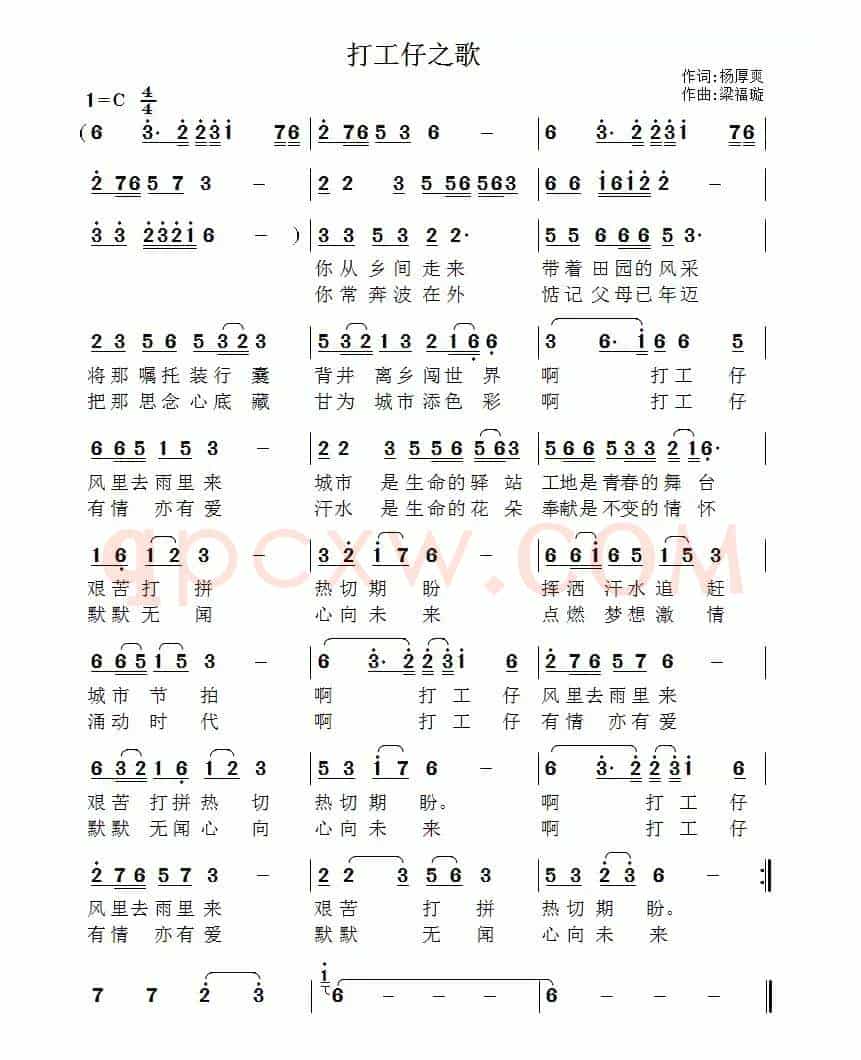 打工仔之歌
作词:杨厚爽
作曲:梁福璇
1=C 4/4
(6 3· 2 2 3 1 7 6 | 2 7 6 5 3 6 – | 6 3· 2 2 3 1 7 6 |
2 7 6 5 7 3 – | 2 2 3 5 5 6 5 6 3 | 6 6 1 6 1 2 2 – |
3 3 2 3 2 1 6 – ) | 3 3 5 3 2 2· | 5 5 6 6 6 5 3· |
你从乡间走来 带着田园的风采
你常奔波在外 惦记父母已年迈
2 3 5 6 5 3 2 3 | 5 3 2 1 3 2 1 6 6 | 3 6· 1 6 6 5 |
将那嘱托装行囊 背井离乡闯世界 啊 打工仔
把那思念心底藏 甘为城市添色彩 啊 打工仔
6 6 5 1 5 3 – | 2 2 3 5 5 6 5 6 3 | 5 6 6 5 3 3 2 1 6· |
风里去雨里来 城市是生命的驿站 工地是青春的舞台
有情亦有爱 汗水是生命的花朵 奉献是不变的情怀
qpcxw.COM
1 6 1 2 3 – | 3 2 1 7 6 – | 6 6 1 6 5 1 5 3 |
艰苦打拼 热切期盼 挥洒汗水追赶
默默无闻 心向未来 点燃梦想激情
6 6 5 1 5 3 – | 6 3· 2 2 3 1 6 | 2 7 6 5 7 6 – |
城市节拍 啊 打工仔 风里去雨里来
涌动时代 啊 打工仔 有情亦有爱
6 3 2 1 6 1 2 3 | 5 3 1 7 6 – | 6 3· 2 2 3 1 6 |
艰苦打拼热切 热切期盼。 啊 打工仔
默默无闻心向 心向未来 啊 打工仔
2 7 6 5 7 3 – | 2 2 3 5 6 3 | 5 3 2 3 6 – :|
风里去雨里来 艰苦打拼 热切期盼。
有情亦有爱 默默无闻 心向未来
7 7 2 3 | 1 6 – – – | 6 – – – ‖